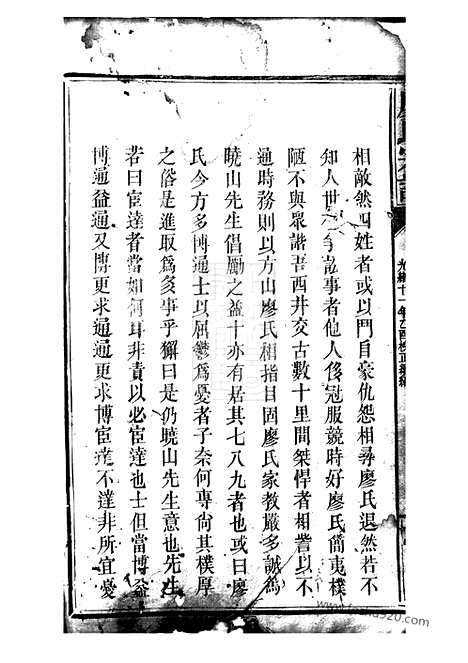 光緒十一年乙酉校正
相敵然四姓者或以鬥自豪仇怨相尋廖氏退然若不
知人世有爭訟事者他人侈冠服競時好廖氏簡夷樸
陋不與眾諧吾酉井交古數十里間桀悍者相訾以不
通時務則以方山廖氏相指目固廖氏家教嚴多誠為
曉山先生倡勵之益十亦有居其七八九者也或曰廖
氏今方多博通士以屈鬱為憂者子奈何專尚其樸厚
之俗是進取為亥事乎獬曰是仍曉山先生意也先生
若曰宦達者當如何耳非責以必宦達也士但當博益
博通益通又博更求通通更求博宦達不達非所宜憂